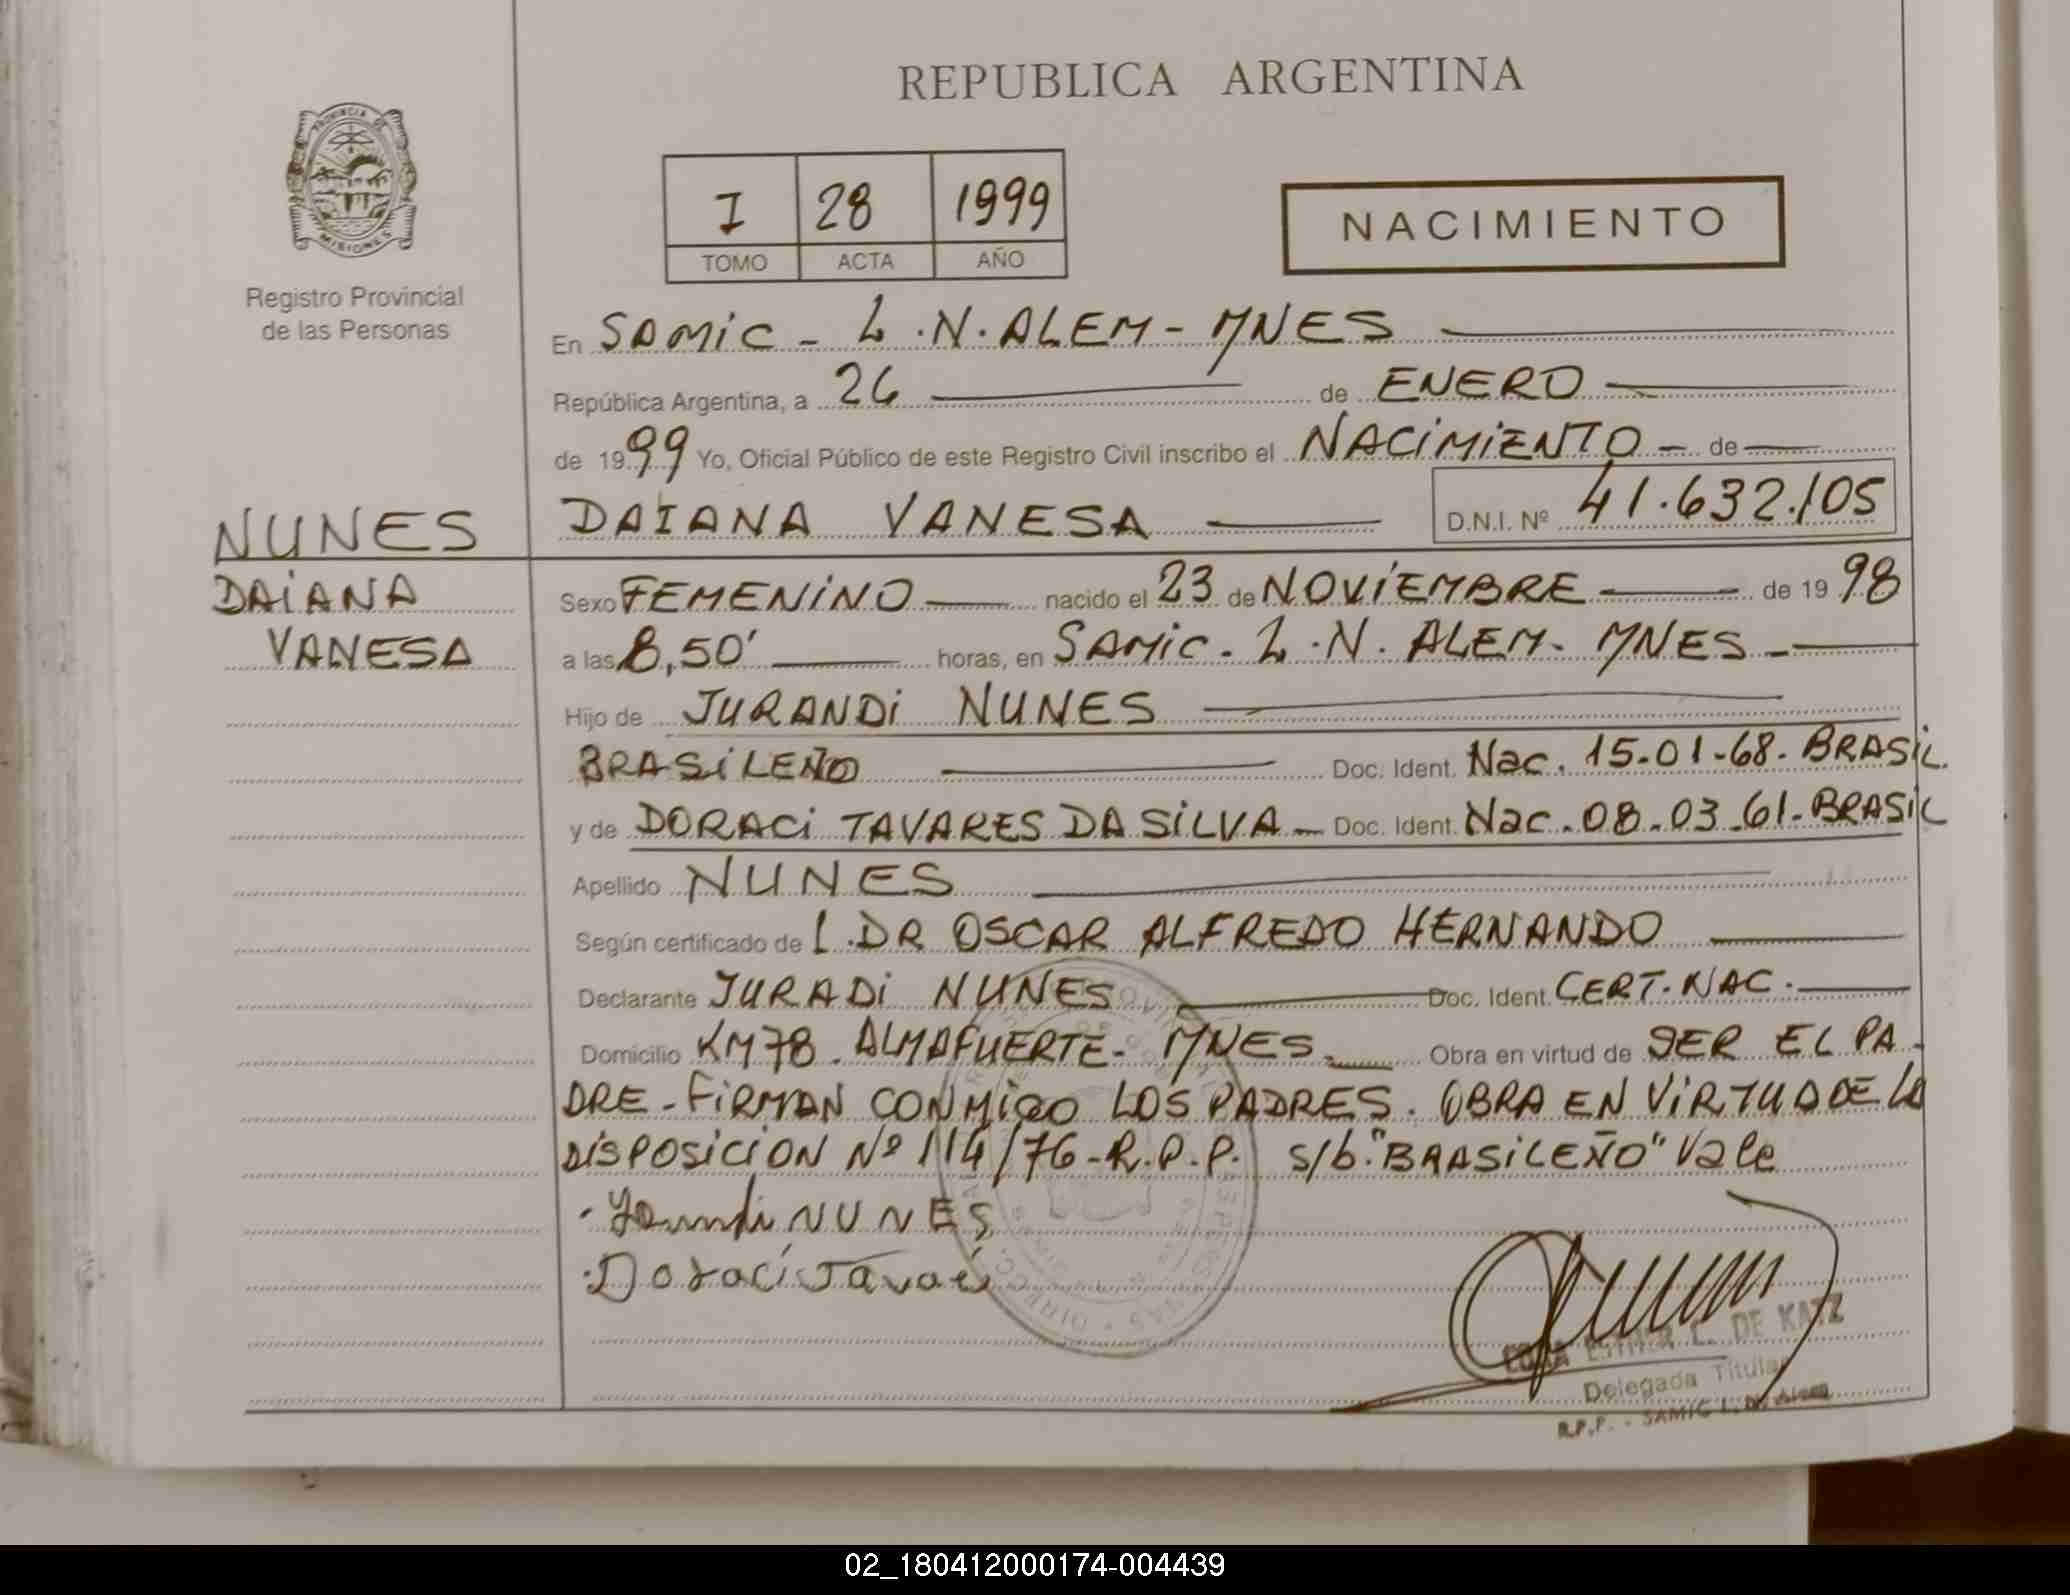 REPUBLICA ARGENTINA
PROVINCIA DE MISIONES
Registro Provincial
de las Personas
I 28 1999
TOMO ACTA AÑO
NACIMIENTO
En SAMIC - L.N. ALEM - MNES
República Argentina, a 26 de ENERO
de 1999 Yo, Oficial Público de este Registro Civil inscribo el NACIMIENTO - de
DAIANA VANESA D.N.I. Nº 41.632.105
NUNES
DAIANA
VANESA
Sexo FEMENINO nacido el 23 de NOVIEMBRE de 1998
a las 8,50' horas, en SAMIC - L.N. ALEM - MNES -
Hijo de JURANDI NUNES
BRASILEÑO Doc. Ident. Nac. 15-01-68. BRASIL.
y de DORACI TAVARES DA SILVA - Doc. Ident. Nac. 08-03-61-BRASIL
Apellido NUNES
Según certificado de L. DR OSCAR ALFREDO HERNANDO
Declarante JURADI NUNES Doc. Ident. CERT. NAC.
Domicilio KM 78. ALMAFUERTE - MNES. Obra en virtud de SER EL PA-
DRE - FIRMAN CONMIGO LOS PADRES. OBRA EN VIRTUD DE LA
DISPOSICION Nº 114/76-R.P.P. s/b. "BRASILEÑO" Vale
NUNES
Doraci
ESTHER L. DE KATZ
Delegada Titular
R.P.P. - SAMIC L. N. Alem
02_180412000174-004439